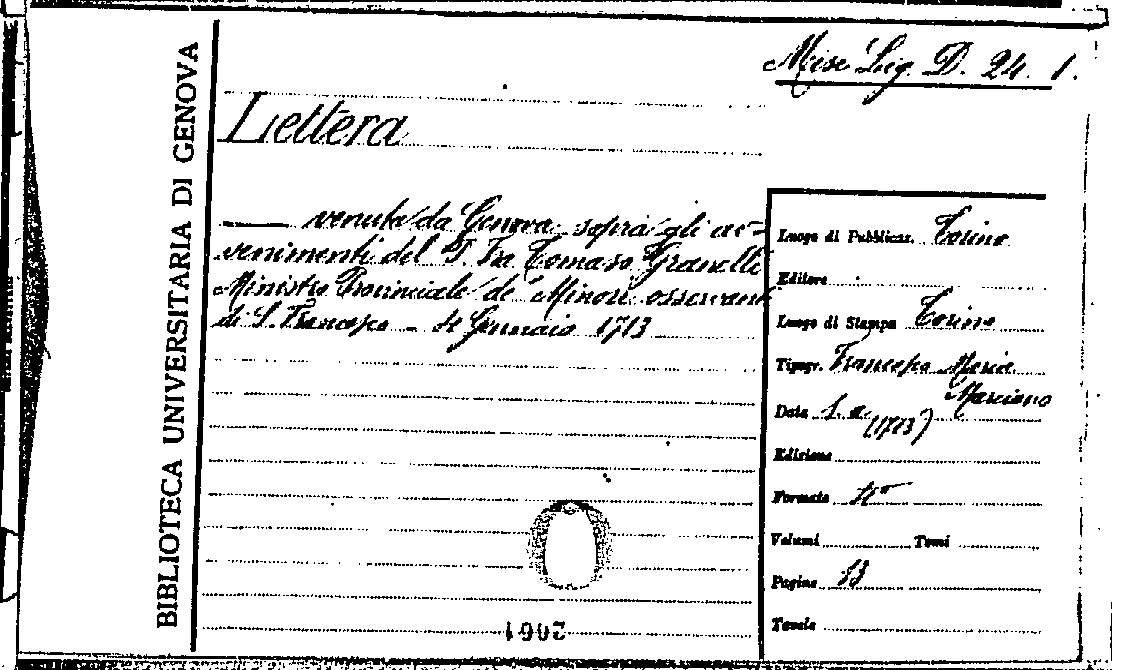 Misc Lig. D. 24. 1.
BIBLIOTECA UNIVERSITARIA DI GENOVA
Lettera
venuta da Genova sopra gli av=
venimenti del P. Fra Tomaso Granelli
Ministro Provinciale de' Minori osservanti
di S. Francesco - 4 Gennaio 1713
Luogo di Pubblicaz. Torino
Editore
Luogo di Stampa Torino
Tipogr. Francesco Maria
Marciano
Data S. a. (1713)
Edizione
Formato 4°
Volumi Tomi
Pagine 13
Tavole